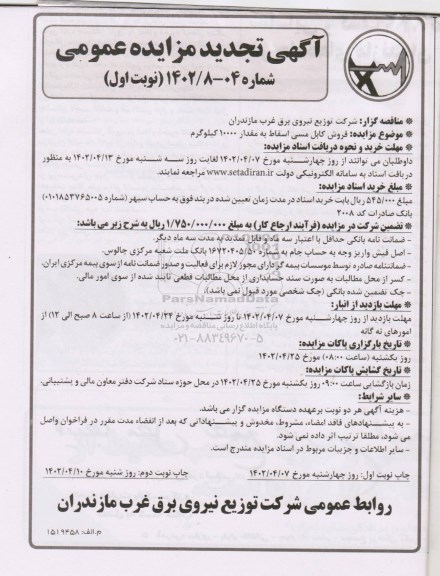 آگهی تجدید مزایده عمومی
شماره ۰۴-۱۴۰۲/۸ (نوبت اول)
* مناقصه گزار: شرکت توزیع نیروی برق غرب مازندران
* موضوع مزایده: فروش کابل مسی اسقاط به مقدار ۱۰۰۰۰ کیلوگرم
* مهلت خرید و نحوه دریافت اسناد مزایده:
داوطلبان می توانند از روز چهارشنبه مورخ ۱۴۰۲/۰۴/۰۷ لغایت روز سه شنبه مورخ ۱۴۰۲/۰۴/۱۳ به منظور
دریافت اسناد به سامانه الکترونیکی دولت www.setadiran.ir مراجعه نمایند.
* مبلغ خرید اسناد مزایده:
مبلغ ۵۴۵/۰۰۰ ریال بابت خرید اسناد در مدت زمان تعیین شده در بند فوق به حساب سپهر (شماره ۰۱۰۱۸۵۳۷۶۵۰۰۵)
بانک صادرات کد ۲۰۰۸
* تضمین شرکت در مزایده (فرآیند ارجاع کار) به مبلغ ۱/۷۵۰/۰۰۰/۰۰۰ ریال به شرح زیر می باشد:
- ضمانت نامه بانکی حداقل با اعتبار سه ماه و قابل تمدید به مدت سه ماه دیگر.
- اصل فیش واریز وجه به حساب جام به شماره ۱۶۷۲۰۴۰۵/۵۰ بانک ملت شعبه مرکزی چالوس.
- ضمانتنامه صادره توسط موسسات بیمه گر دارای مجوز لازم برای فعالیت و صدور ضمانت نامه از سوی بیمه مرکزی ایران.
- کسر از محل مطالبات به صورت سند حسابداری از محل مطالبات قطعی تایید شده از سوی امور مالی.
- چک تضمین شده بانکی (چک شخصی مورد قبول نمی باشد).
ParsNamadData
* مهلت بازدید از انبار:
مهلت بازدید از روز چهارشنبه مورخ ۱۴۰۲/۰۴/۰۷ تا روز شنبه مورخ ۱۴۰۲/۰۴/۲۴ (از ساعت ۸ صبح الی ۱۲) از
پایگاه اطلاع رسانی مناقصه و مزایده
امورهای نه گانه
۰۲۱-۸۸۳۴۹۶۷۰-۵
* تاریخ بارگزاری پاکات مزایده:
روز یکشنبه (ساعت ۰۸:۰۰) مورخ ۱۴۰۲/۰۴/۲۵
* تاریخ گشایش پاکات مزایده:
زمان بازگشایی ساعت ۰۹:۰۰ روز یکشنبه مورخ ۱۴۰۲/۰۴/۲۵ در محل حوزه ستاد شرکت دفتر معاون مالی و پشتیبانی.
* سایر شرایط:
- هزینه آگهی هر دو نوبت برعهده دستگاه مزایده گزار می باشد.
- به پیشنهادهای فاقد امضاء، مشروط، مخدوش و پیشنهاداتی که بعد از انقضاء مدت مقرر در فراخوان واصل
می شود، مطلقا ترتیب اثر داده نمی شود.
- سایر اطلاعات و جزییات مربوط در اسناد مزایده مندرج است.
چاپ نوبت اول: روز چهارشنبه مورخ ۱۴۰۲/۰۴/۰۷
چاپ نوبت دوم: روز شنبه مورخ ۱۴۰۲/۰۴/۱۰
روابط عمومی شرکت توزیع نیروی برق غرب مازندران
م.الف: ۱۵۱۹۴۵۸